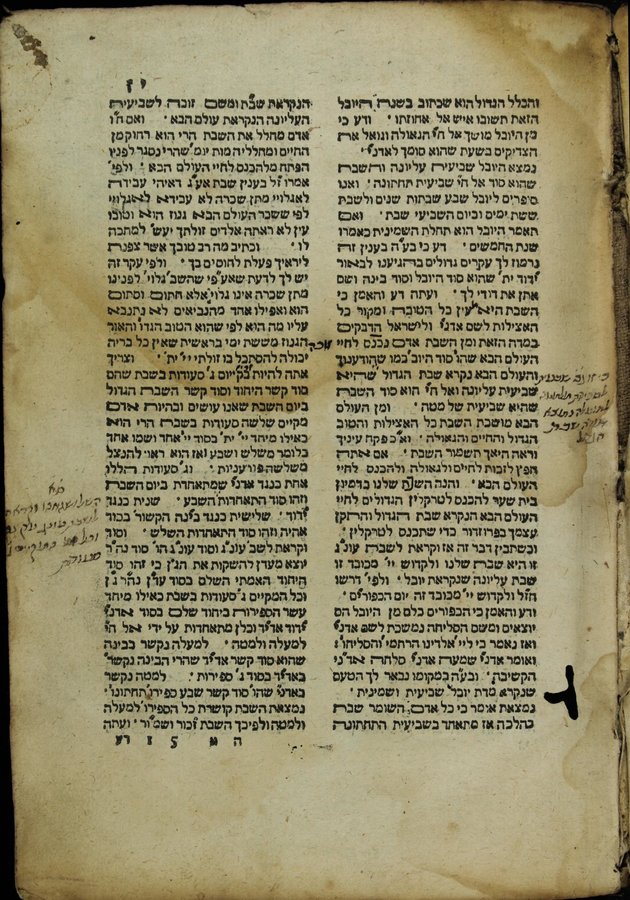 יז
והכלל הגדול הוא שכתוב בשנת היובל
הזאת תשובו איש אל אחוזתו ודע כי
מן היובל מושך אל חי הגאולה וגואל את
הצדיקים בשעת שהוא סומך לאדני
נמצא היובל שביעית עליונה והשבת
שהוא סוד אל חי שביעית תחתונה ואנו
סופרים ליובל שבע שבתות שנים ולשבת
ששת ימים וביום השביעי שבת ואם
תאמר היובל הוא תחלת השמינית כאמרו
שנת החמשים דע כי בע"ה בענין זה
נרמוז לך עקרים גדולים בהגיענו לבאור
ידוד ית' שהוא סוד היובל וסוד בינה ושם
אתן את דודי לך ועתה דע והאמן כי
השבת היא עין כל הטובה ומקור כל
האצילות לשם אדני ולישראל הדבקים
במדה הזאת ומן השבת אדם נכנס לחיי
העולם הבא שהו' סוד היוב' כמו שהודענוך
העולם הבא נקרא שבת הגדול שהיא
שביעית עליונה ואל חי הוא סוד השבת
שהיא שביעית של מטה ומן העולם
הבא מושכת השבת כל האצילות והטוב
הגדול והחיים והגאולה וא"כ פקח עיניך
וראה היאך תשמור השבת אם אתה
חפץ לזכות לחיים ולגאולה ולהכנס לחיי
העולם הבא והנה השבת שלנו בדמיון
בית שער להכנס לטרקלין הגדולים לחיי
העולם הבא הנקרא שבת הגדול והתקן
עצמך בפרוזדור כדי שתכנס לטרקלין
וכשתבין דבר זה אז וקראת לשבת עונג
זו היא שבת שלנו ולקדוש יי' מכובד זו
שבת עליונה שנקראת יובל ולפי' דרשו
חז"ל ולקדוש יי' מכובד זה יום הכפורים
ודע והאמן כי הכפורים כלם מן היובל הם
יוצאים ומשם הסליחה נמשכת לשם אדני
ואז נאמר כי ליי' אלדינו הרחמי' והסליחו' ו
ואומר אדני שמעה אדני סלחה אדני
הקשיבה ובע"ה במקומו נבאר לך הטעם
שנקרא מדת יובל שביעית ושמינית
נמצאת אומר כי כל אדם השומר שבת
כהלכה אז מתאחד בשביעית התחתונה
הנקראת שבת ומשם זוכה לשביעית
העליונה הנקראת עולם הבא ואם ח"ו
אדם מחלל את השבת הרי הוא רחוק מן
החיים ומחלליה מות יומ' שהרי נסגר לפניו
הפתח מלהכנס לחיי העולם הבא ולפי'
אמרו ז"ל בענין שבת אע"ג דאיהי עבידה
לאגלויי מתן שכרה לא עבידא לאגלויי
לפי ששכר העולם הבא גנוז הוא וטובו
עין לא ראתה אלדים זולתך יעש' למחכה
לו וכתיב מה רב טובך אשר צפנת
ליראיך פעלת לחוסים בך ולפי עקר זה
יש לך לדעת שאע"פ שהשב' גלוי' לפנינו
מתן שכרה אינו גלוי' אלא חתום וסתום
הוא ואפילו אחד מהנביאים לא נתנבא
עליו מה הוא לפי שהוא הטוב הגדו' והאור
הגנוז מששת ימי בראשית שאין כל בריה
יכולה להסתכל בו זולתי יי' ית' וצריך
אתה להיות זהיר בקיום ג' סעודות בשבת שהם
סוד קשר היחוד וסוד קשר השבת הגדול
ביום השבת שאנו עושים ובהיות אדם
מקיים שלשה סעודות בשבת הרי הוא
כאילו מיחד יי' ית' בסוד יי' אחד ושמו אחד
כלומר משלש ושבע ואז הוא ראוי להנצל
משלשה פורעניות וג' סעודות הללו
אחת כנגד אדני שמתאחדת ביום השבת
וזהו סוד התאחדות השבע שנית כנגד
ידוד שלישית כנגד בינה הקשור בסוד
אהיה וזהו סוד התאחדות השלש וסוד
וקראת לשב' עונג וסוד עונג הו' סוד נהר
יוצא מעדן להשקות את הגן כי זהו סוד
היחוד האמתי השלם בסוד עדן נהר גן
וכל המקיים ג' סעודות בשבת כאילו מיחד
עשר הספירות ביחוד שלם בסוד אדני
ידוד אדיד וכלן מתאחדות על ידי אל חי
למעלה ולמטה למעלה נקשר בבינה
שהוא סוד קשר אדיד שהרי הבינה נקשר'
באדיד בסוד ג' ספירות למטה נקשר
באדני שהו' סוד קשר שבע ספירו' תחתונו'
נמצאת השבת קושרת כל הספירו' למעלה
ולמטה ולפיכך השבת זכור ושמור ועתה
ה מ 5 ז דע